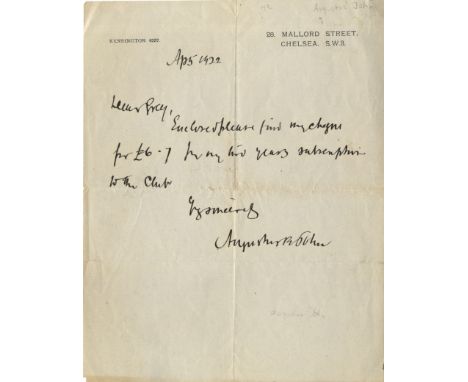 Augustus John
KENSINGTON 6022.
28, MALLORD STREET,
CHELSEA. S.W.3.
Ap 5 1922
Dear Gray,
Enclosed please find my cheque
for £6-7 for my two years subscription
to the Club
Yrs sincerely
Augustus E John